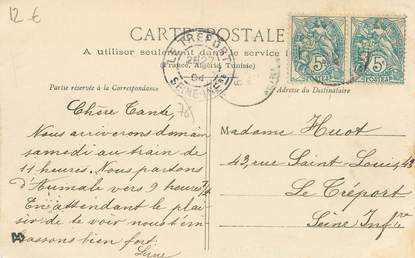 12 €
CARTE POSTALE
A utiliser seulement dans le service i
(France, Algérie, Tunisie)
Partie réservée à la Correspondance
Adresse du Destinataire
LE TREPORT
04
SEINE-INFRE
5c
POSTES
5c
POSTES
Chère Tante,
Nous arriverons demain
samedi au train de
11 heures. Nous partons
d'Aumale vers 9 heures
En attendant le plai
sir de te voir nous t'em
brassons bien fort.
Madame Huot
43, rue Saint-Louis, 43
Le Tréport
Seine Infre